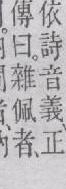 依詩音義、正
傳曰。雜佩者、